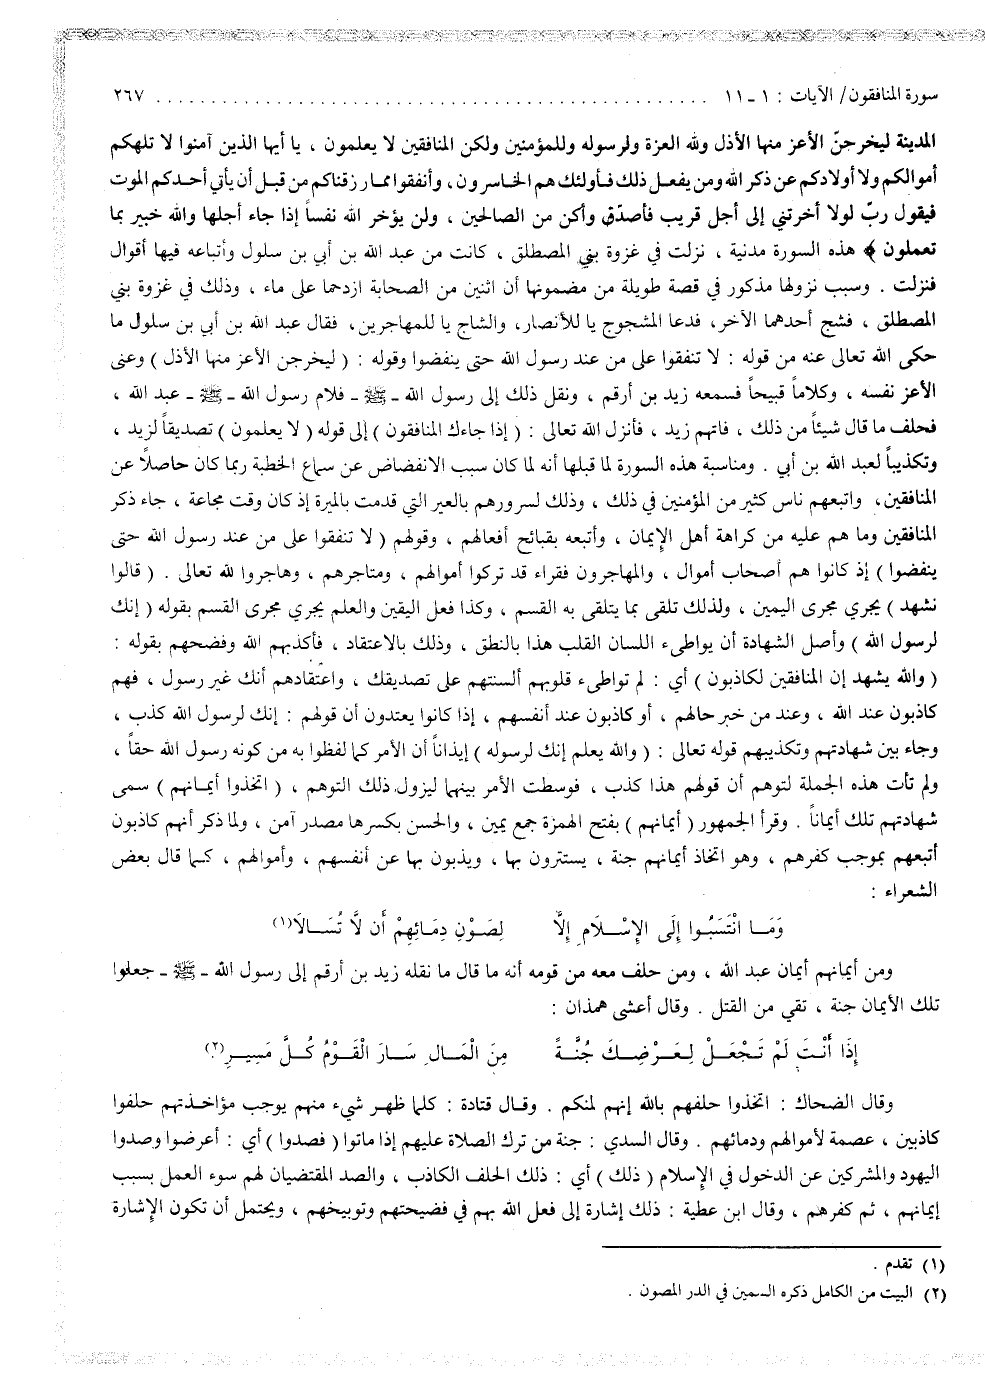 سورة المنافقون/ الآيات : ١ ـ ١١ ................................................ ٢٦٧
المدينة ليخرجنّ الأعز منها الأذل ولله العزة ولرسوله وللمؤمنين ولكن المنافقين لا يعلمون ، يا أيها الذين آمنوا لا تلهكم
أموالكم ولا أولادكم عن ذكر الله ومن يفعل ذلك فأولئك هم الخاسرون ، وأنفقوا مما رزقناكم من قبل أن يأتي أحدكم الموت
فيقول ربّ لولا أخرتني إلى أجل قريب فأصدّق وأكن من الصالحين ، ولن يؤخر الله نفساً إذا جاء أجلها والله خبير بما
تعملون ﴾ هذه السورة مدنية ، نزلت في غزوة بني المصطلق ، كانت من عبد الله بن أبي بن سلول وأتباعه فيها أقوال
فنزلت . وسبب نزولها مذكور في قصة طويلة من مضمونها أن اثنين من الصحابة ازدحما على ماء ، وذلك في غزوة بني
المصطلق ، فشج أحدهما الآخر، فدعا المشجوج يا للأنصار، والشاج يا للمهاجرين، فقال عبد الله بن أبي بن سلول ما
حكى الله تعالى عنه من قوله : لا تنفقوا على من عند رسول الله حتى ينفضوا وقوله : ( ليخرجن الأعز منها الأذل ) وعنى
الأعز نفسه ، وكلاماً قبيحاً فسمعه زيد بن أرقم ، ونقل ذلك إلى رسول الله ـ ﷺ ـ فلام رسول الله ـ ﷺ ـ عبد الله ،
فحلف ما قال شيئاً من ذلك ، فاتهم زيد ، فأنزل الله تعالى : ( إذا جاءك المنافقون ) إلى قوله ( لا يعلمون ) تصديقاً لزيد ،
وتكذيباً لعبد الله بن أبي . ومناسبة هذه السورة لما قبلها أنه لما كان سبب الانفضاض عن سماع الخطبة ربما كان حاصلاً عن
المنافقين، واتبعهم ناس كثير من المؤمنين في ذلك ، وذلك لسرورهم بالعير التي قدمت بالميرة إذ كان وقت مجاعة ، جاء ذكر
المنافقين وما هم عليه من كراهة أهل الإيمان ، وأتبعه بقبائح أفعالهم ، وقولهم ( لا تنفقوا على من عند رسول الله حتى
ينفضوا ) إذ كانوا هم أصحاب أموال ، والمهاجرون فقراء قد تركوا أموالهم ، ومتاجرهم ، وهاجروا لله تعالى . ( قالوا
نشهد ) يجري مجرى اليمين ، ولذلك تلقى بما يتلقى به القسم ، وكذا فعل اليقين والعلم يجري مجرى القسم بقوله ( إنك
لرسول الله ) وأصل الشهادة أن يواطىء اللسان القلب هذا بالنطق ، وذلك بالاعتقاد ، فأكذبهم الله وفضحهم بقوله :
( والله يشهد إن المنافقين لكاذبون ) أي : لم تواطىء قلوبهم ألسنتهم على تصديقك ، واعتقادهم أنك غير رسول ، فهم
كاذبون عند الله ، وعند من خبر حالهم ، أو كاذبون عند أنفسهم ، إذا كانوا يعتدون أن قولهم : إنك لرسول الله كذب ،
وجاء بين شهادتهم وتكذيبهم قوله تعالى : ( والله يعلم إنك لرسوله ) إيذاناً أن الأمر كما لفظوا به من كونه رسول الله حقاً ،
ولم تأت هذه الجملة لتوهم أن قولهم هذا كذب ، فوسطت الأمر بينهما ليزول ذلك التوهم ، ( اتخذوا أيمانهم ) سمى
شهادتهم تلك أيماناً . وقرأ الجمهور ( أيمانهم ) بفتح الهمزة جمع يمين ، والحسن بكسرها مصدر آمن ، ولما ذكر أنهم كاذبون
أتبعهم بموجب كفرهم ، وهو اتخاذ أيمانهم جنة ، يستترون بها ، ويذبون بها عن أنفسهم ، وأموالهم ، كما قال بعض
الشعراء :
وَمَا انْتَسَبُوا إِلَى الإِسْلَامِ إِلَّا لِصَوْنِ دِمَائِهِمْ أَن لَّا تُسَالَا(١)
ومن أيمانهم أيمان عبد الله ، ومن حلف معه من قومه أنه ما قال ما نقله زيد بن أرقم إلى رسول الله ـ ﷺ ـ جعلوا
تلك الأيمان جنة ، تقي من القتل . وقال أعشى همذان :
إِذَا أَنْتَ لَمْ تَجْعَلْ لِعَرْضِكَ جُنَّةً مِنَ الْمَالِ سَارَ الْقَوْمُ كُلَّ مَسِيرِ(٢)
وقال الضحاك : اتخذوا حلفهم بالله إنهم لمنكم . وقال قتادة : كلما ظهر شيء منهم يوجب مؤاخذتهم حلفوا
كاذبين ، عصمة لأموالهم ودمائهم . وقال السدي : جنة من ترك الصلاة عليهم إذا ماتوا ( فصدوا ) أي : أعرضوا وصدوا
اليهود والمشركين عن الدخول في الإسلام ( ذلك ) أي : ذلك الحلف الكاذب ، والصد المقتضيان لهم سوء العمل بسبب
إيمانهم ، ثم كفرهم ، وقال ابن عطية : ذلك إشارة إلى فعل الله بهم في فضيحتهم وتوبيخهم ، ويحتمل أن تكون الإشارة
(١) تقدم .
(٢) البيت من الكامل ذكره السمين في الدر المصون .